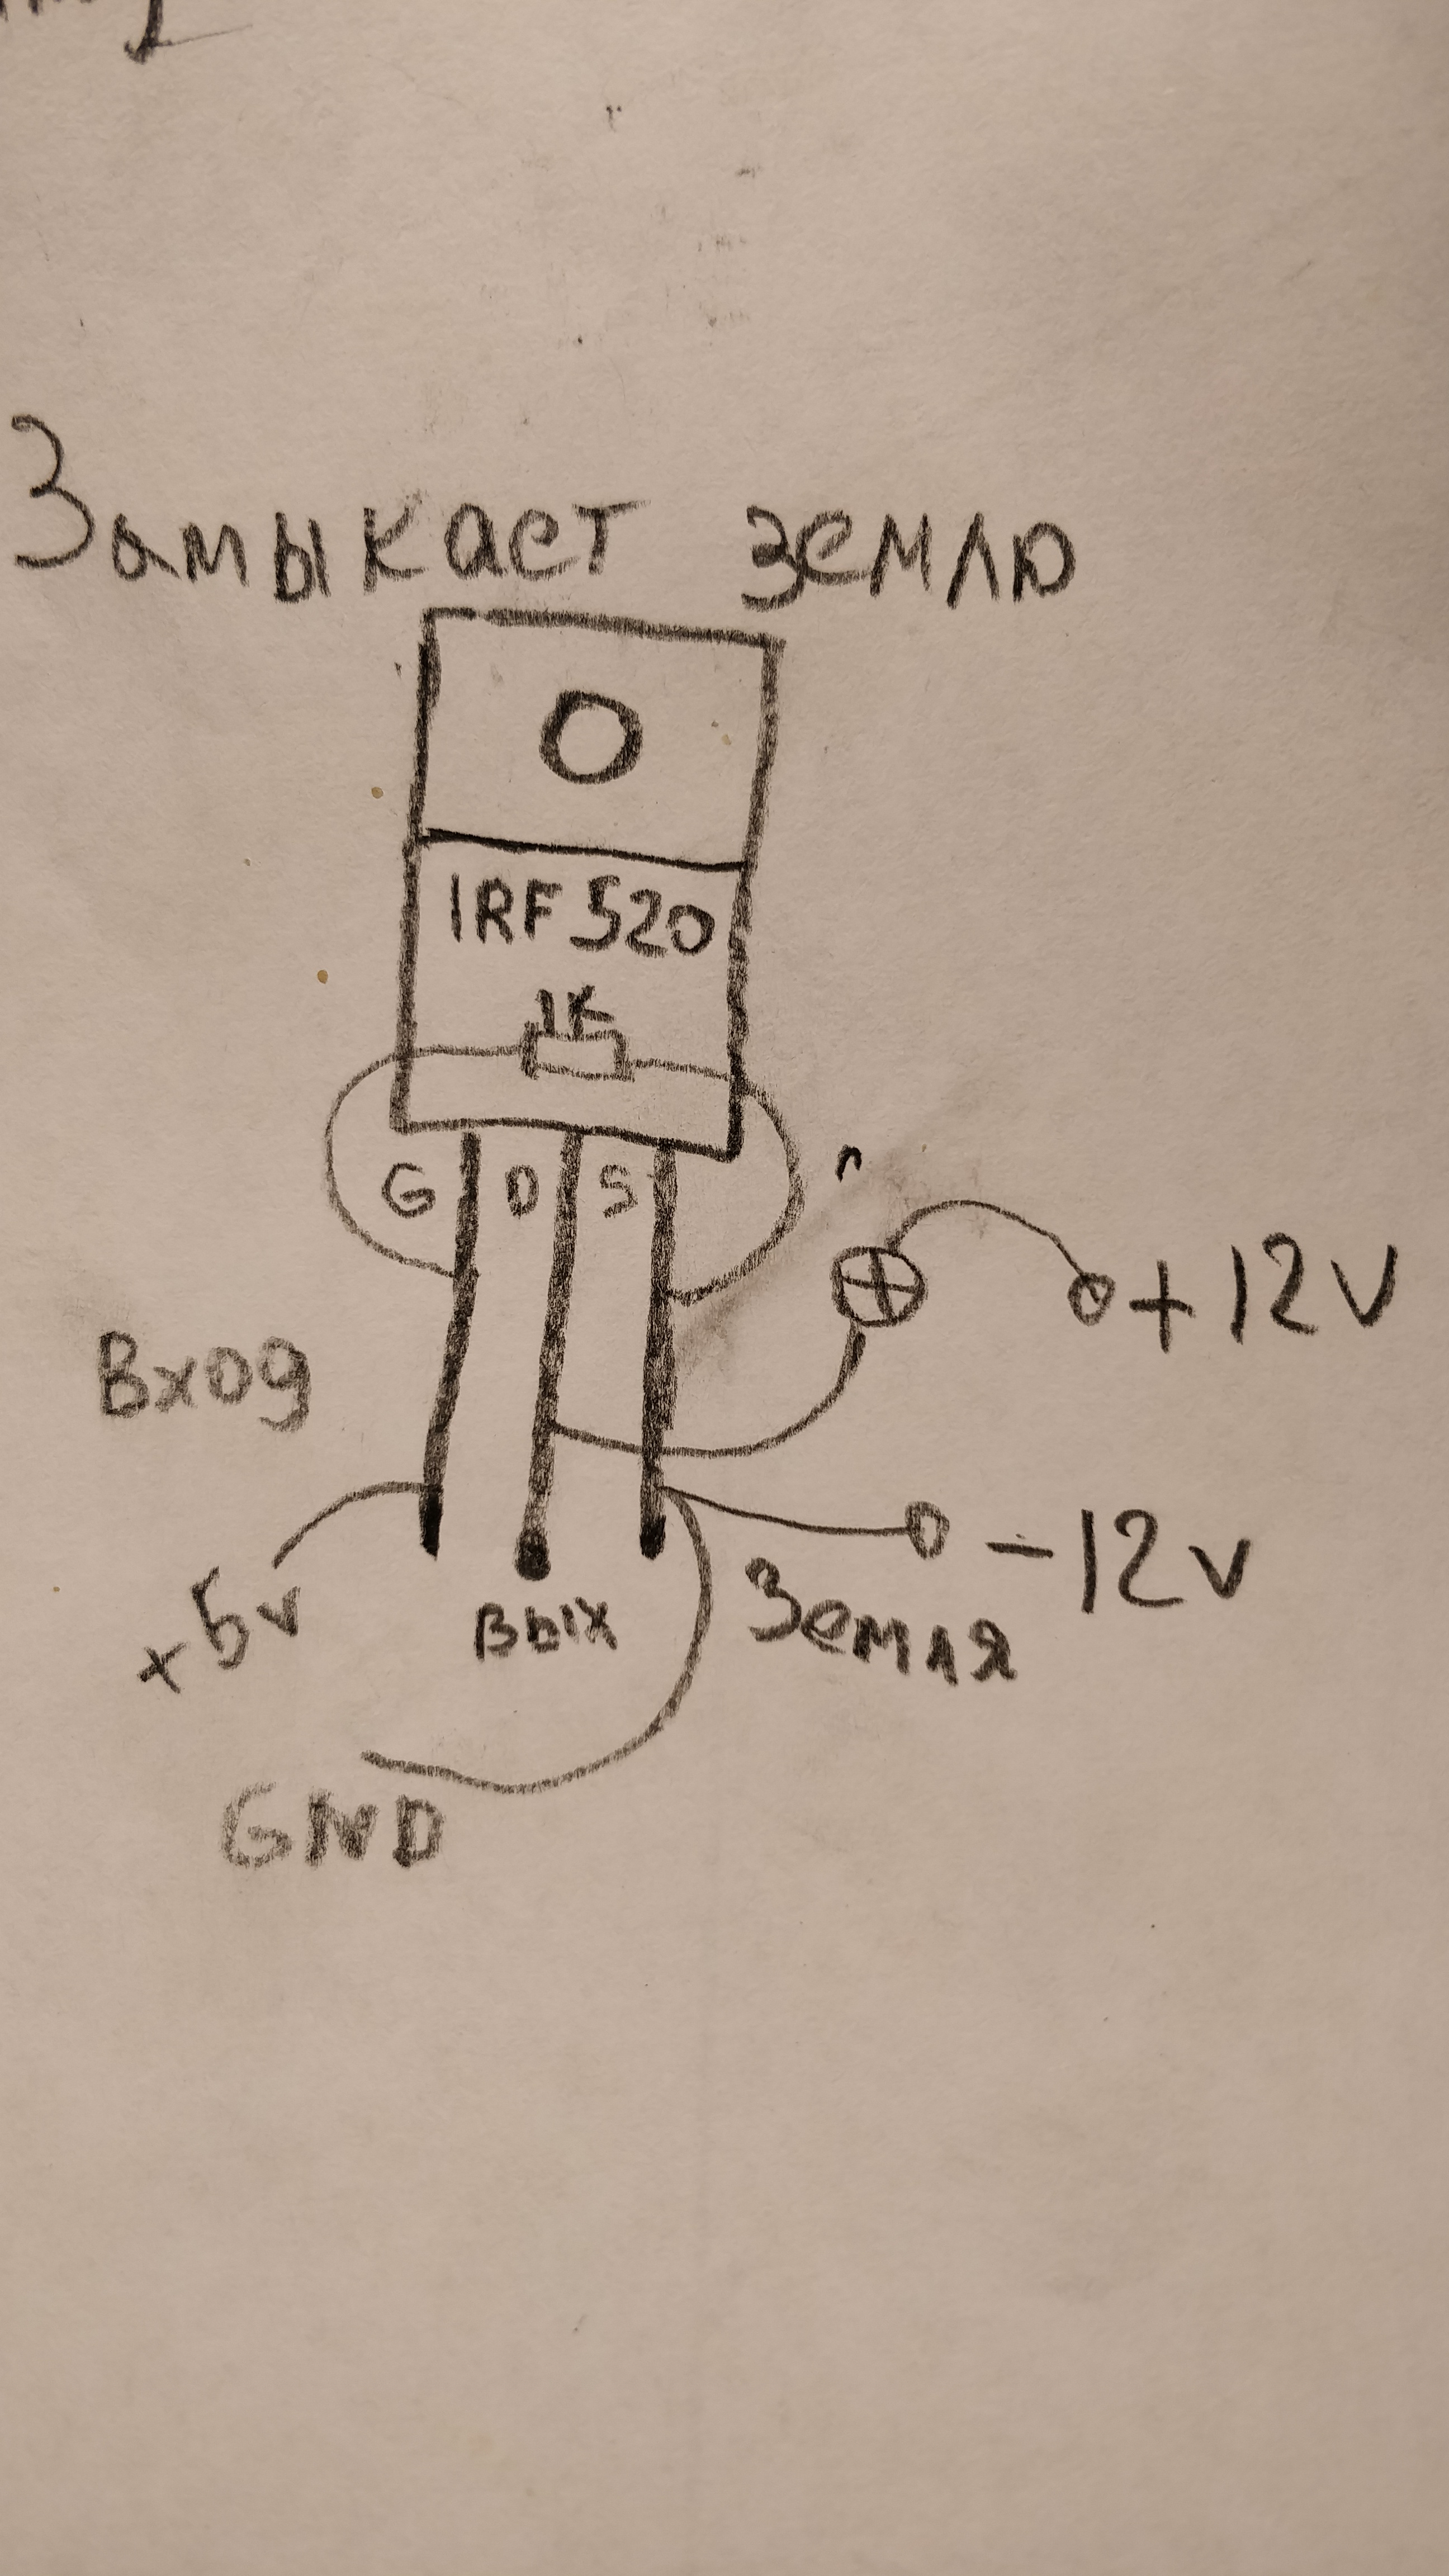 Замыкает землю
IRF520
1K
G D S
+12V
Вход
-12V
+5v
Вых
Земля
GND